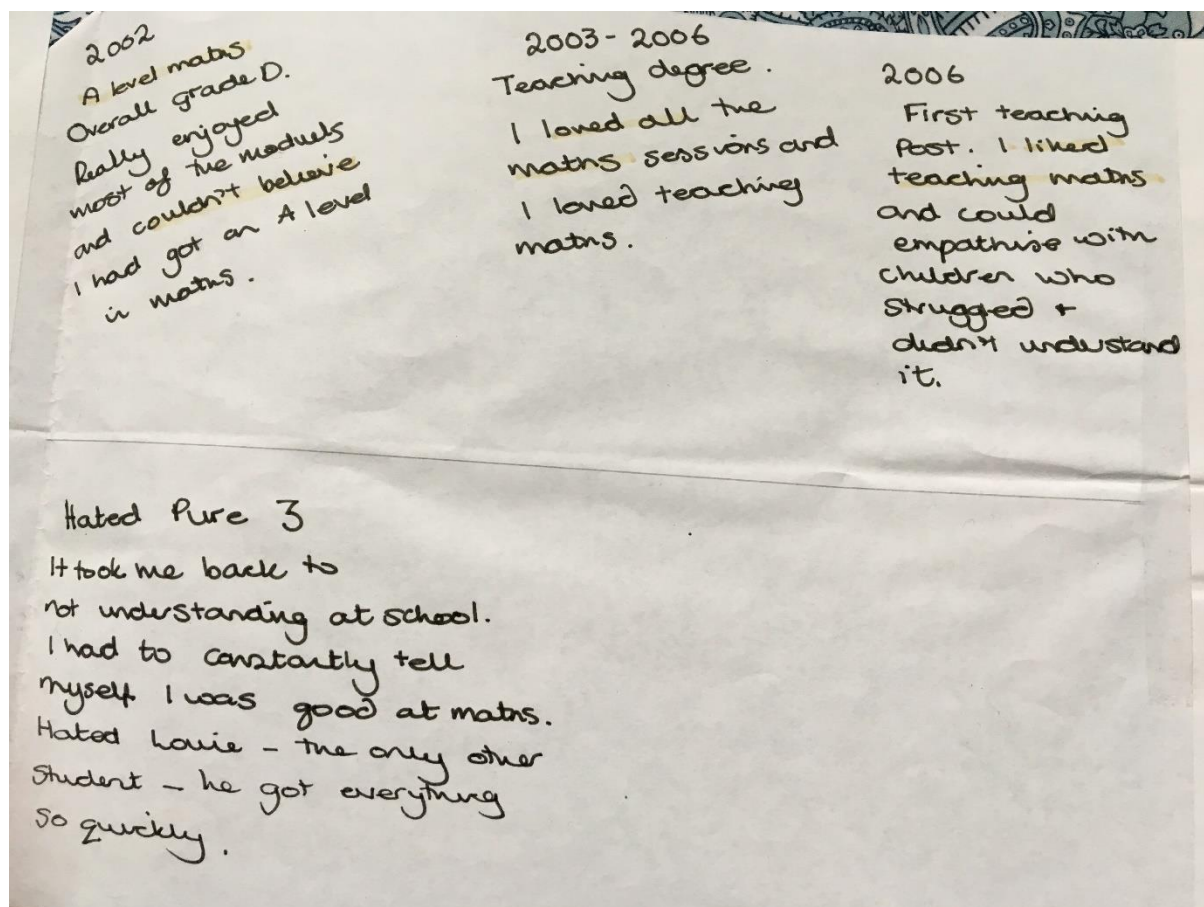 2002
A level maths
Overall grade D.
Really enjoyed
most of the moduels
and couldn't believe
I had got an A level
in maths.
2003-2006
Teaching degree.
I loved all the
maths sessions and
I loved teaching
maths.
2006
First teaching
Post. I liked
teaching maths
and could
empathise with
children who
struggled +
didn't understand
it.
Hated Pure 3
It took me back to
not understanding at school.
I had to constantly tell
myself I was good at maths.
Hated Louie - the only other
student - he got everything
so quickly.